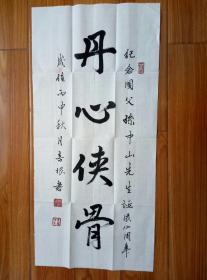 纪念国父孙中山先生诞辰周年
丹心侠骨
岁在丙申秋月喜根书